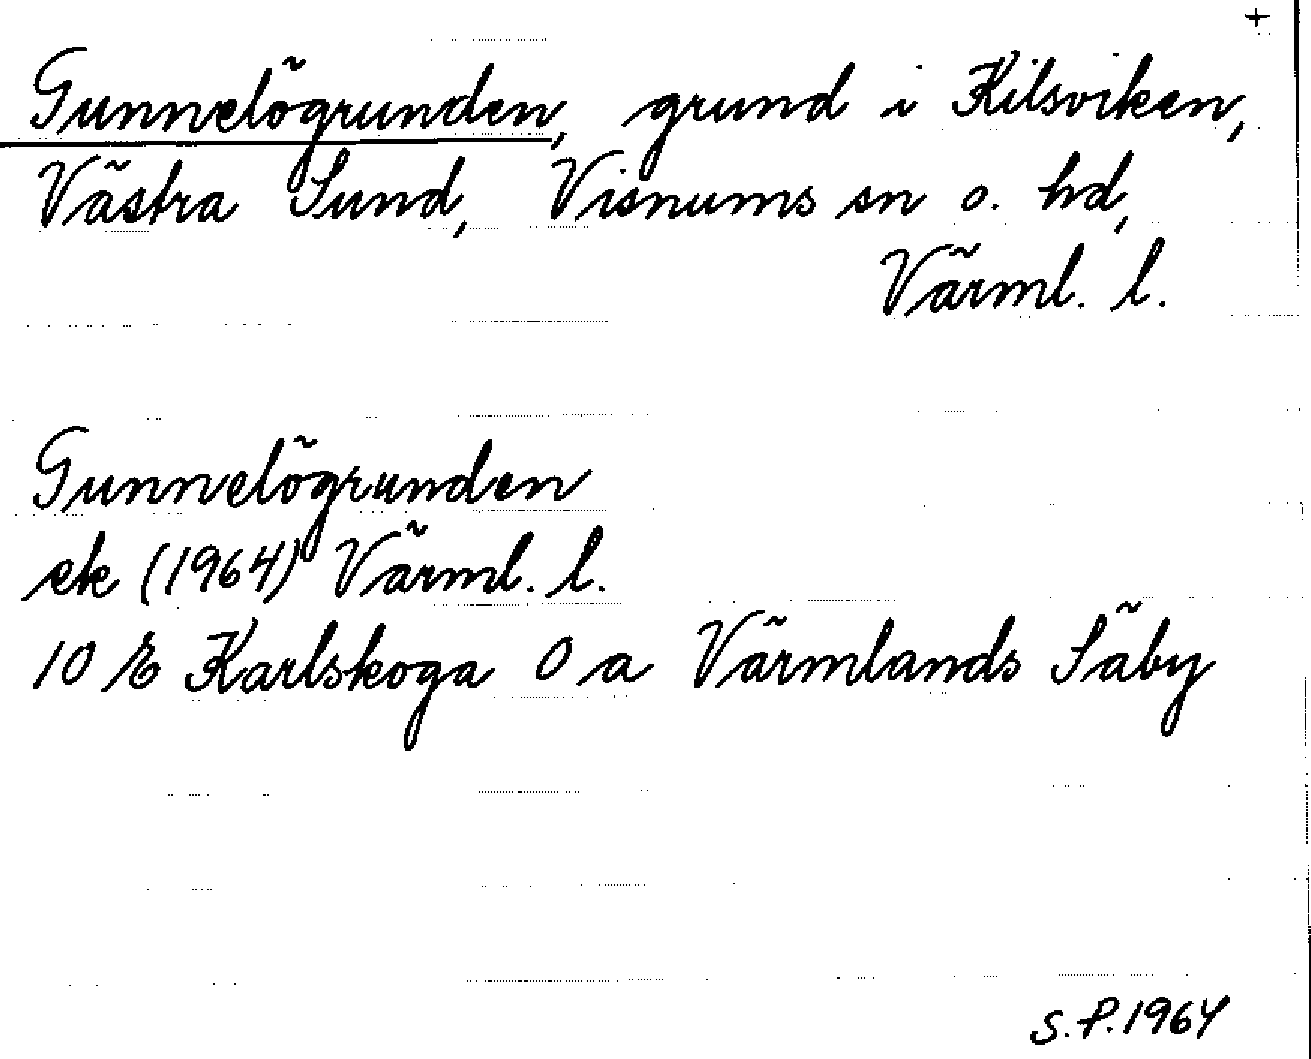 +
Gunnelögrunden, grund i Kilsviken,
Västra Sund, Visnums sn o. hd,
Värml. l.
Gunnelögrunden
ek (1964) Värml. l.
10 E Karlskoga 0 a Värmlands Säby
S.P.1964